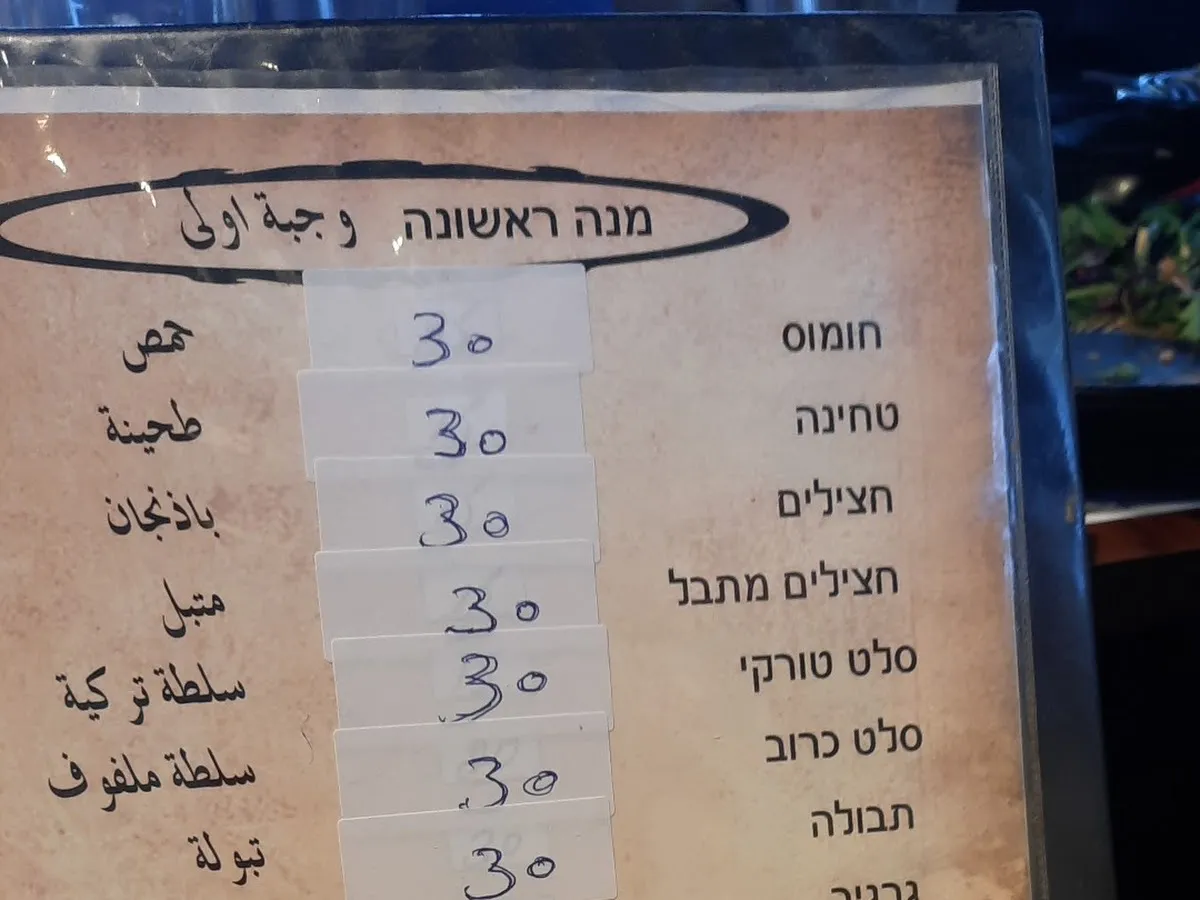 מנה ראשונה وجبة اولى
חומוס 30 حمص
טחינה 30 طحينة
חצילים 30 باذنجان
חצילים מתבל 30 متبل
סלט טורקי 30 سلطة تركية
סלט כרוב 30 سلطة ملفوف
תבולה 30 تبولة